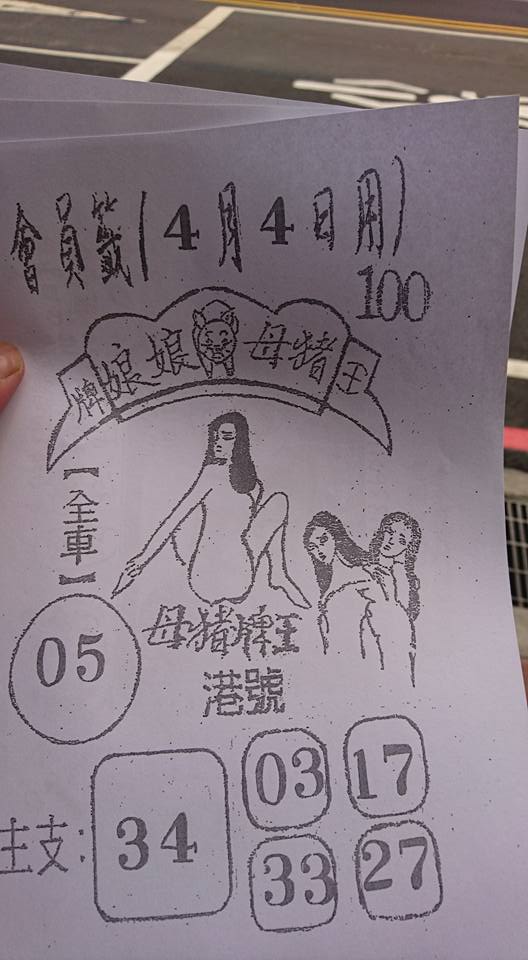 會員籤(4月4日用)
100
牌娘娘 母猪王
【全車】
05
母猪牌王
港號
主支:
34
03 17
33 27